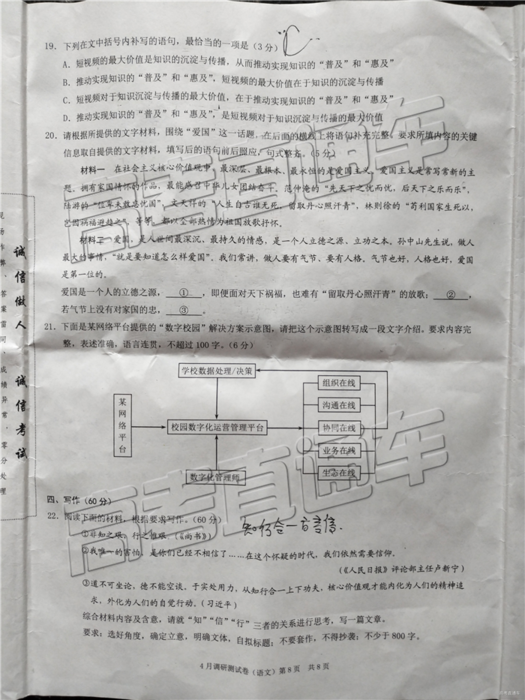 19. 下列在文中括号内补写的语句，最恰当的一项是（3分）
A. 短视频的最大价值是知识的沉淀与传播，从而推动实现知识的“普及”和“惠及”
B. 推动实现知识的“普及”和“惠及”，短视频的最大价值在于知识的沉淀与传播
C. 短视频对于知识沉淀与传播的最大价值，在于推动实现知识的“普及”和“惠及”
D. 推动实现知识的“普及”和“惠及”，是短视频对于知识沉淀与传播的最大价值
20. 请根据所提供的文字材料，围绕“爱国”这一话题，在后面的横线上将语句补充完整。要求所填内容的关键
信息取自提供的文字材料，填写后的语句前后照应，句式整齐。（5分）
材料一 在社会主义核心价值观中，最深层、最根本、最永恒的是爱国主义。爱国主义是常写常新的主
题，拥有家国情怀的作品，最能感召中华儿女团结奋斗。范仲淹的“先天下之忧而忧，后天下之乐而乐”、
陆游的“位卑未敢忘忧国”、文天祥的“人生自古谁无死，留取丹心照汗青”、林则徐的“苟利国家生死以，
岂因祸福避趋之”，等等，都以全部热情为祖国放歌抒怀。
材料二 爱国，是人世间最深沉、最持久的情感，是一个人立德之源、立功之本。孙中山先生说，做人
最大的事情，“就是要知道怎么样爱国”。我们常讲，做人要有气节、要有人格。气节也好，人格也好，爱国
是第一位的。
爱国是一个人的立德之源， ① ，即便面对天下祸福，也难有“留取丹心照汗青”的放歌； ② ，
若气节上没有对家国的忠， ③ 。
21. 下面是某网络平台提供的“数字校园”解决方案示意图，请把这个示意图转写成一段文字介绍。要求内容完
整，表述准确，语言连贯，不超过100字。（6分）
学校数据处理/决策
某网络平台
校园数字化运营管理平台
数字化管理师
组织在线
沟通在线
协同在线
业务在线
生态在线
四、写作（60分）
22. 阅读下面的材料，根据要求写作。（60分）
知行合一
①非知之艰，行之惟艰。（《尚书》）
②我唯一的害怕，是你们已经不相信了……在这个怀疑的时代，我们依然需要信仰。
（《人民日报》评论部主任卢新宁）
③道不可坐论，德不能空谈。于实处用力，从知行合一上下功夫，核心价值观才能内化为人们的精神追
求，外化为人们的自觉行动。（习近平）
综合材料内容及含意，请就“知”“信”“行”三者的关系进行思考，写一篇文章。
要求：选好角度，确定立意，明确文体，自拟标题；不要套作，不得抄袭；不少于800字。
4月调研测试卷（语文）第8页 共8页
诚信做人 诚信考试
高考直通车
高考直通车
高考直通车